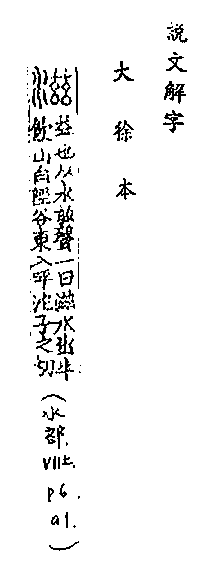 說文解字
大徐本
滋 益也从水兹聲一曰滋水出牛
飮山白陘谷東入呼沱子之切
(水部. VII上. p6. a1.)